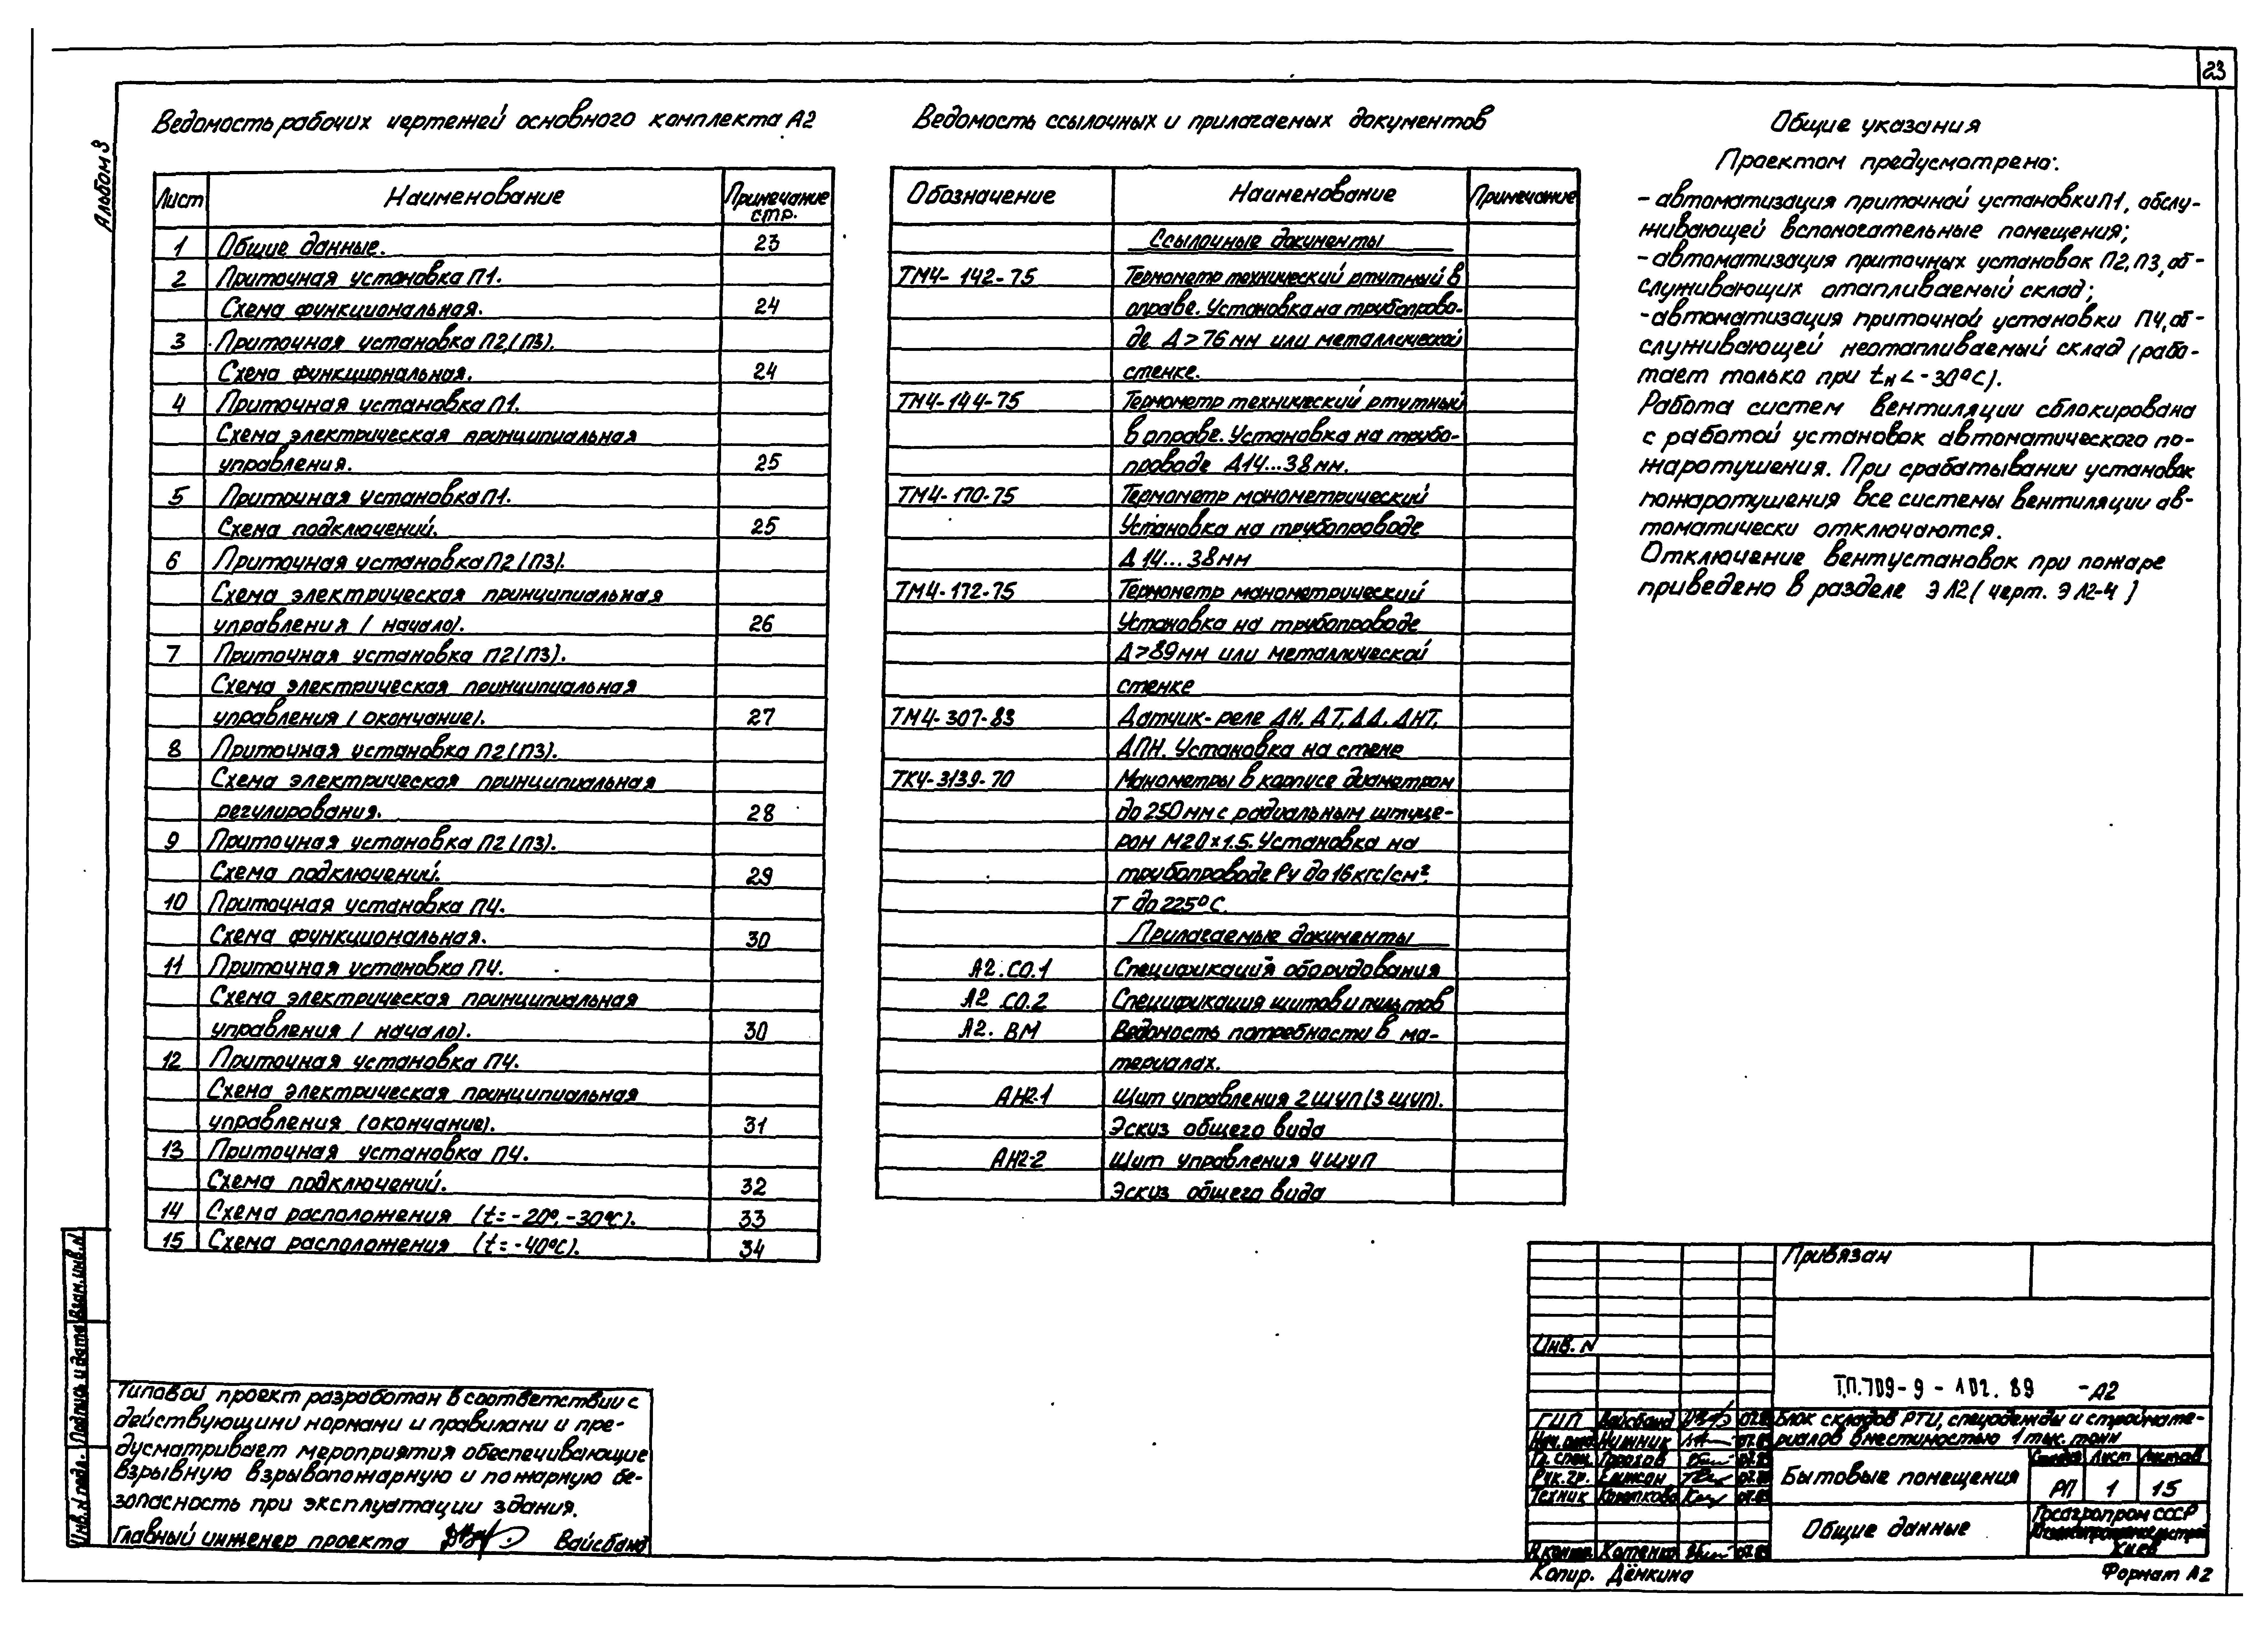 23
Альбом 3
Ведомость рабочих чертежей основного комплекта А2
Лист Наименование Примечание стр.
1 Общие данные. 23
2 Приточная установка П1.
Схема функциональная. 24
3 Приточная установка П2(П3).
Схема функциональная. 24
4 Приточная установка П1.
Схема электрическая принципиальная
управления. 25
5 Приточная установка П1.
Схема подключений. 25
6 Приточная установка П2(П3).
Схема электрическая принципиальная
управления (начало). 26
7 Приточная установка П2(П3).
Схема электрическая принципиальная
управления (окончание). 27
8 Приточная установка П2(П3).
Схема электрическая принципиальная
регулирования. 28
9 Приточная установка П2(П3).
Схема подключений. 29
10 Приточная установка П4.
Схема функциональная. 30
11 Приточная установка П4.
Схема электрическая принципиальная
управления (начало). 30
12 Приточная установка П4.
Схема электрическая принципиальная
управления (окончание). 31
13 Приточная установка П4.
Схема подключений. 32
14 Схема расположения (t=-20°,-30°С). 33
15 Схема расположения (t=-40°С). 34
Ведомость ссылочных и прилагаемых документов
Обозначение Наименование Примечание
Ссылочные документы
ТМ4-142-75 Термометр технический ртутный в
оправе. Установка на трубопрово-
де Д>76 мм или металлической
стенке.
ТМ4-144-75 Термометр технический ртутный
в оправе. Установка на трубо-
проводе Д14...38 мм.
ТМ4-170-75 Термометр манометрический
Установка на трубопроводе
Д 14...38 мм
ТМ4-172-75 Термометр манометрический
Установка на трубопроводе
Д>89 мм или металлической
стенке
ТМ4-307-83 Датчик-реле ДН, ДТ, ДД, ДНТ,
ДПН. Установка на стене
ТК4-3139-70 Манометры в корпусе диаметром
до 250 мм с радиальным штуце-
ром М20×1.5. Установка на
трубопроводе Ру до 16 кгс/см².
Т до 225°С.
Прилагаемые документы
А2.СО.1 Спецификация оборудования
А2 .СО.2 Спецификация щитов и пультов
А2. ВМ Ведомость потребности в ма-
териалах.
АН2-1 Щит управления 2ЩУП(3 ЩУП).
Эскиз общего вида
АН2-2 Щит управления 4ЩУП
Эскиз общего вида
Общие указания
Проектом предусмотрено:
- автоматизация приточной установки П1, обслу-
живающей вспомогательные помещения;
- автоматизация приточных установок П2, П3, об-
служивающих отапливаемый склад;
- автоматизация приточной установки П4, об-
служивающей неотапливаемый склад (рабо-
тает только при tн < -30°С).
Работа систем вентиляции сблокирована
с работой установок автоматического по-
жаротушения. При срабатывании установок
пожаротушения все системы вентиляции ав-
томатически отключаются.
Отключение вентустановок при пожаре
приведено в разделе ЭЛ2 (черт. ЭЛ2-4)
Взам.инв.N
Подпись и дата
Инв.N подл.
Типовой проект разработан в соответствии с
действующими нормами и правилами и пре-
дусматривает мероприятия обеспечивающие
взрывную взрывопожарную и пожарную бе-
зопасность при эксплуатации здания.
Главный инженер проекта Вайсбанд
Привязан
Инв. N
Т.П.709-9-102.89 -А2
ГИП Вайсбанд 07.89 Блок складов РТИ, спецодежды и строймате-
Нач.отд Нижник 07.89 риалов вместимостью 1 тыс. тонн
Гл.спец. Горохов 07.89
Рук.гр. 07.89 Бытовые помещения
Техник Короткова 07.89
Стадия Лист Листов
РП 1 15
Общие данные
Госагропром СССР
Киев
Н.контр. Котенко 07.89
Копир. Дёнкина
Формат А2